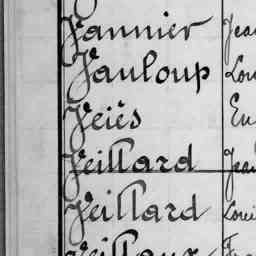 Vannier Jea
Vauloup Lou
Veiës Eu
Veillard Jea
Veillard Loui